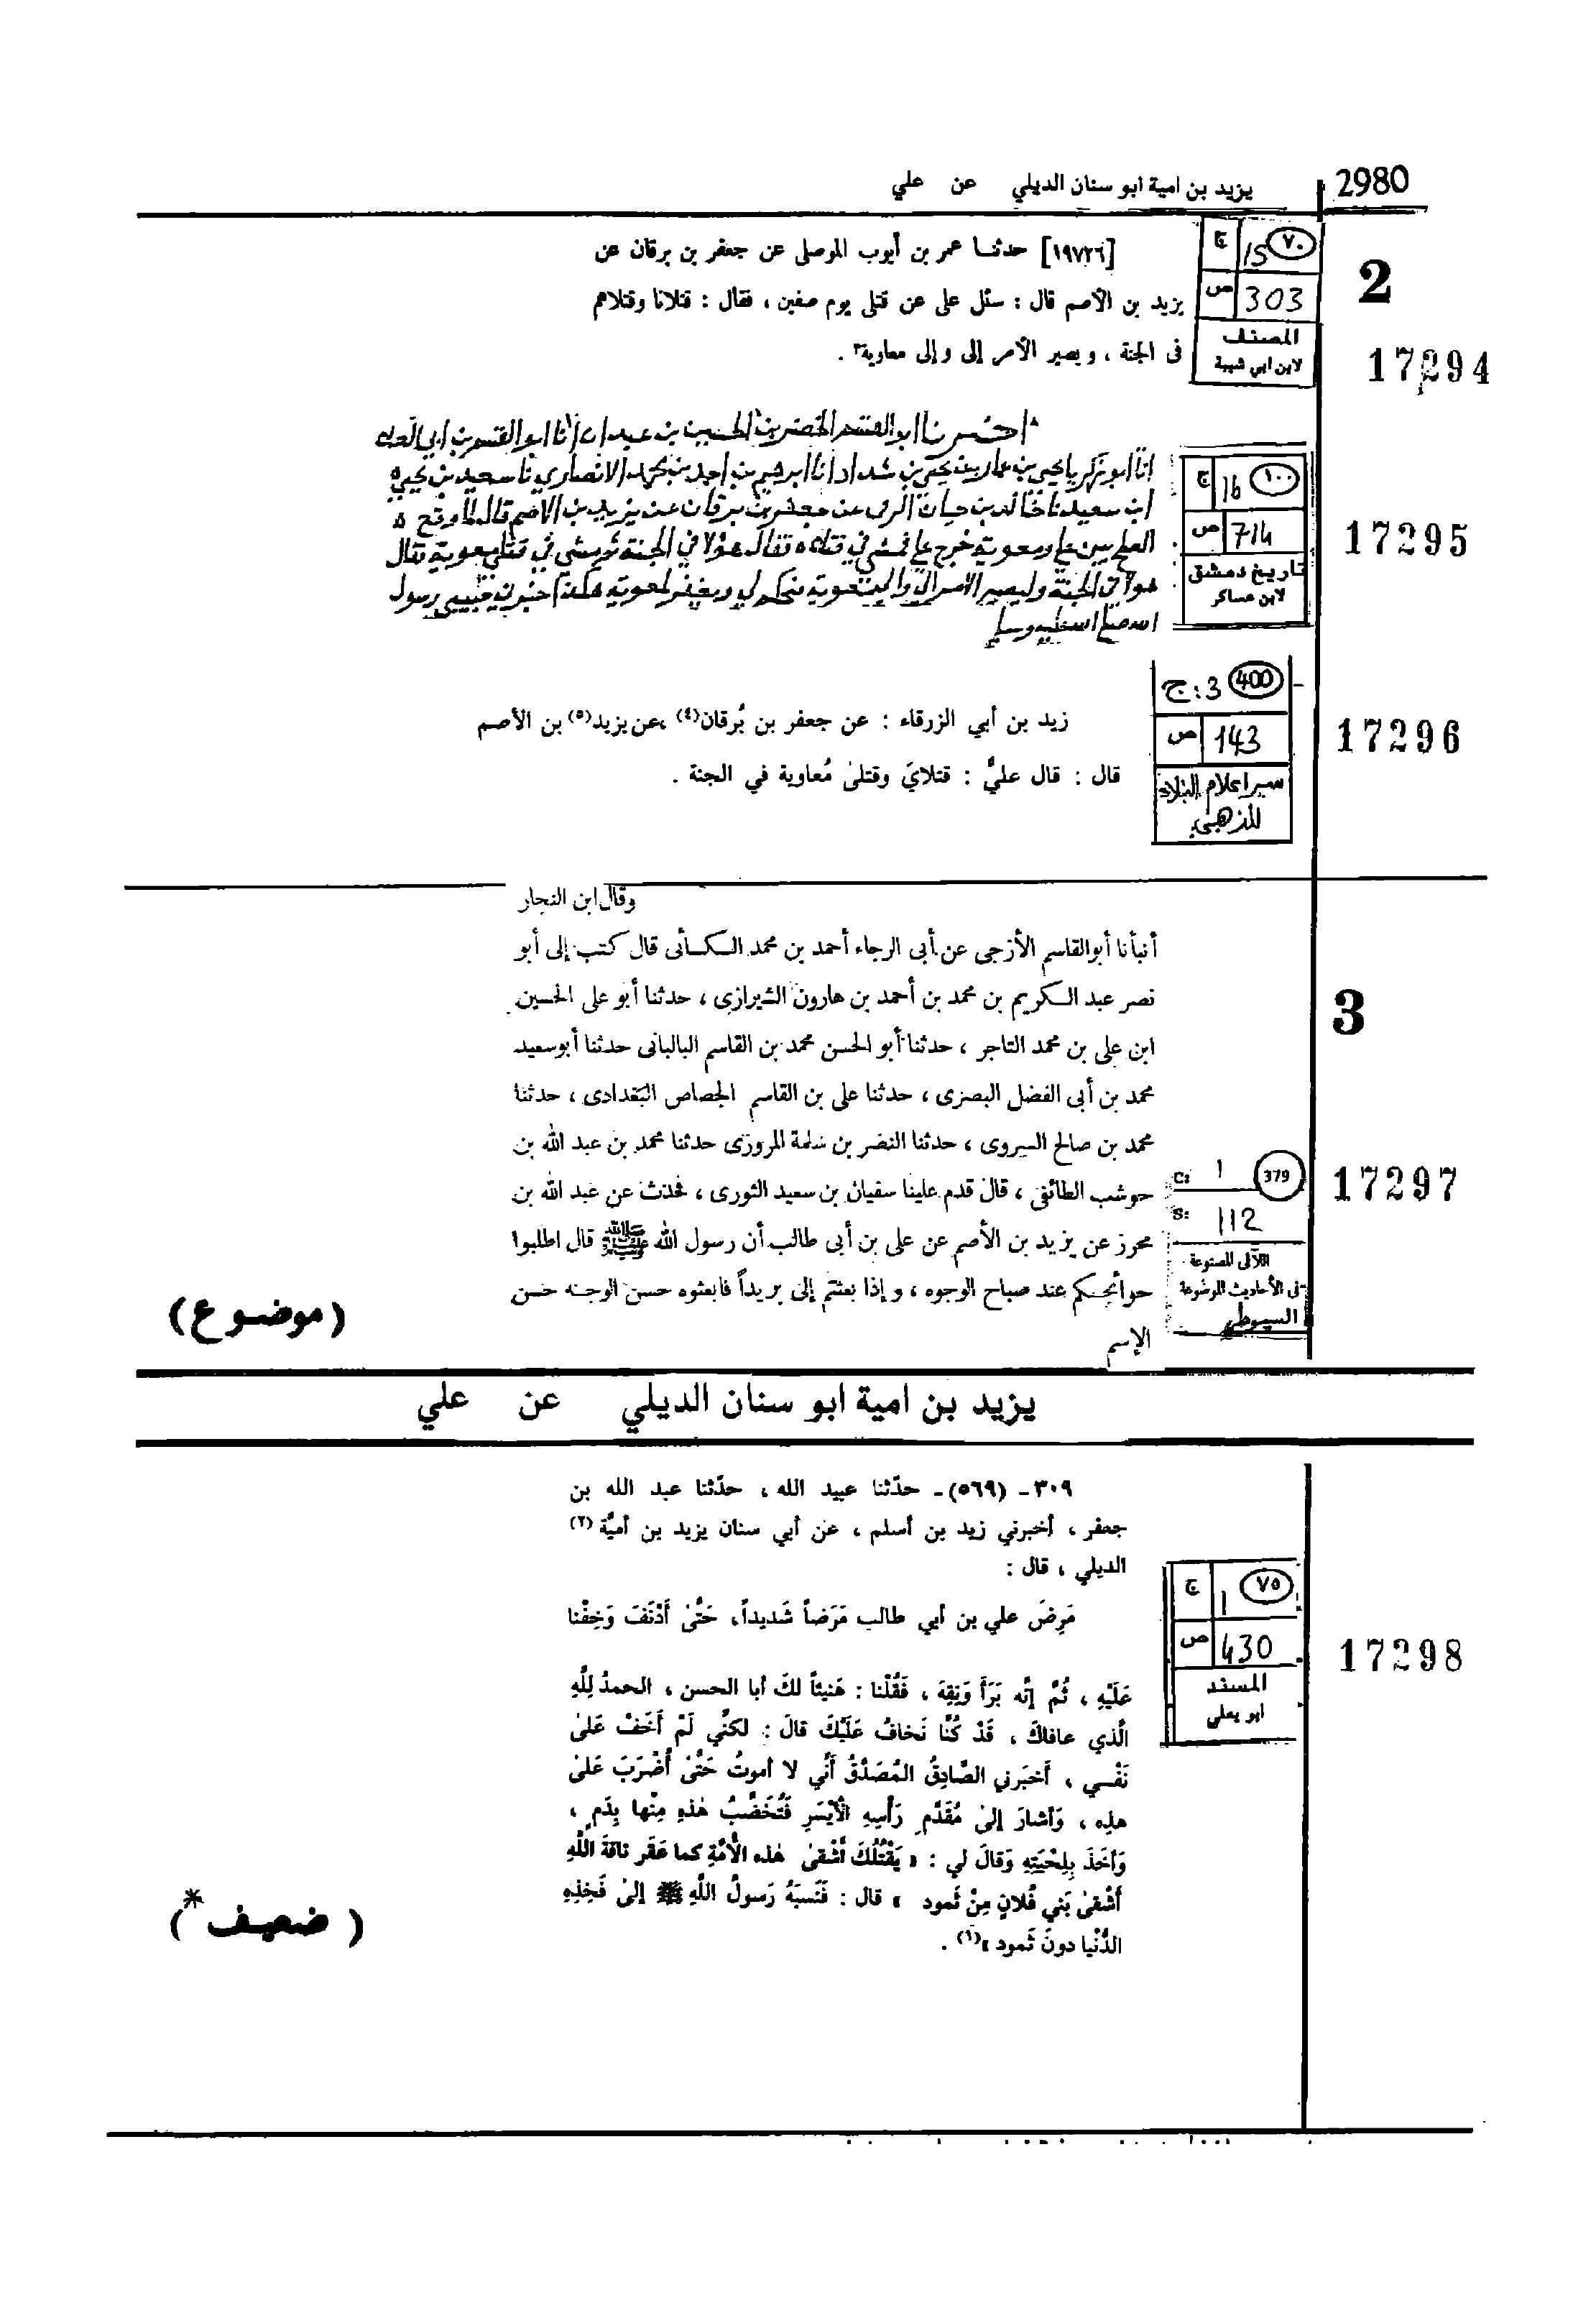 2980
يزيد بن امية ابو سنان الديلي عن علي
2
[١٩٧٢٦] حدثنا عمر بن أيوب الموصلى عن جعفر بن برقان عن
يزيد بن الأصم قال : سئل على عن قتلى يوم صفين ، فقال : قتلانا وقتلاهم
فى الجنة ، ويصير الأمر إلى وإلى معاوية٣ .
٧٠ ج 15
ص 303
المصنف
لابن ابي شيبة
17294
اخبرنا ابو الفتح الخضر بن الحسين بن عبدان انا ابو القسم بن ابي العلاء
انا ابو زكريا يحيى بن عمار بن يحيى بن شداد انا ابرهيم بن احمد بن محمد الانصاري نا سعيد بن يحيى
ابن سعيد نا خالد بن حيان الرقى عن جعفر بن برقان عن يزيد بن الاصم قال لما وقع
الصلح بين علي ومعوية خرج علي فمشى في قتلاه فقال هؤلا في الجنة ثم مشى في قتلى معوية فقال
هولا في الجنة وليصير الامر الي والى معوية فيحكم لي ويغفر لمعوية هكذا اخبرني حبيبي رسول
الله صلى الله عليه وسلم
١٠٠ ج 16
ص 714
تاريخ دمشق
لابن عساكر
17295
زيد بن أبي الزرقاء : عن جعفر بن بُرقان(٤) ،عن يزيد(٥) بن الأصم
قال : قال عليٌّ : قتلايَ وقتلىٰ مُعاوية في الجنة .
400 ج: 3
ص 143
سير اعلام النبلاء
للذهبي
17296
وقال ابن النجار
أنبأنا أبوالقاسم الأزجى عن أبى الرجاء أحمد بن محمد الكسائى قال كتب إلى أبو
نصر عبد الكريم بن محمد بن أحمد بن هارون الشيرازى ، حدثنا أبو على الحسين
ابن على بن محمد التاجر ، حدثنا أبو الحسن محمد بن القاسم البالبانى حدثنا أبوسعيد
محمد بن أبى الفضل البصرى ، حدثنا على بن القاسم الجصاص البغدادى ، حدثنا
محمد بن صالح السيروى ، حدثنا النضر بن سلمة المروزى حدثنا محمد بن عبد الله بن
حوشب الطائفى ، قال قدم علينا سفيان بن سعيد الثورى ، فحدث عن عبد الله بن
محرز عن يزيد بن الأصم عن على بن أبى طالب أن رسول الله ﷺ قال اطلبوا
حوائجكم عند صباح الوجوه ، وإذا بعثتم إلى بريداً فابعثوه حسن الوجه حسن
الإسم
3
C: 1 379
S: 112
اللآلى المصنوعة
فى الأحاديث الموضوعة
السيوطي
17297
(موضوع)
يزيد بن امية ابو سنان الديلي عن علي
٣٠٩ - (٥٦٩) - حدّثنا عبيد الله ، حدّثنا عبد الله بن
جعفر ، أخبرني زيد بن أسلم ، عن أبي سنان يزيد بن أميَّة (٢)
الديلي ، قال :
مَرِضَ علي بن أبي طالب مَرَضاً شَديداً، حَتَّىٰ أَدْنَفَ وَخِفْنا
عَلَيْهِ ، ثُمَّ إنَّه بَرَأَ وَنَقِهَ ، فَقُلْنا : هَنيئاً لكَ أبا الحسن ، الحمدُ لِلَّهِ
الَّذي عافاكَ ، قَدْ كُنَّا نَخافُ عَلَيْكَ قالَ : لكنِّي لَمْ أَخَفْ عَلىٰ
نَفْسي ، أَخبَرني الصَّادِقُ المُصَدَّقُ أَنِّي لا أموتُ حَتَّىٰ أُضْرَبَ عَلىٰ
هذِهِ ، وَأشارَ إلىٰ مُقَدَّمِ رَأْسِهِ الْأَيْسَرِ فَتُخَضَّبُ هٰذِهِ مِنْها بِدَمٍ ،
وَأَخَذَ بِلِحْيَتِهِ وَقالَ لي : « يَقْتُلُكَ أَشْقىٰ هٰذه الأُمَّةِ كما عَقَر ناقَةَ اللَّهِ
أَشْقىٰ بَني فُلانٍ مِنْ ثَمود » قال : فَنَسَبَهُ رَسولُ اللَّهِ ﷺ إلىٰ فَخِذِهِ
الدُّنْيا دونَ ثَمود »(٦) .
٧٥ ج 1
ص 430
المسند
ابو يعلي
17298
(ضعيف*)